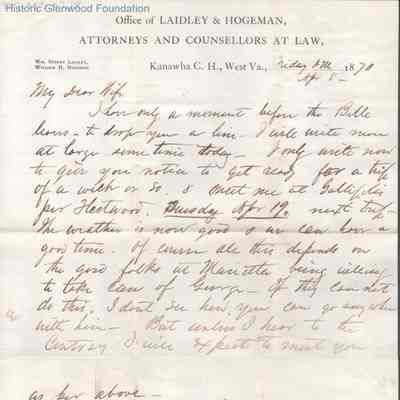 Historic Glenwood Foundation
Office of LAIDLEY & HOGEMAN,
ATTORNEYS AND COUNSELLORS AT LAW,
Wm. Sydney Laidley,
William H. Hogeman.
Kanawha C. H., West Va., Friday 1870
Ap 8 -
My Dear Wife
I have only a moment before the Belle
leaves - to drop you a line - I will write more
at large some time today - I only write now
to give you notice to get ready for a trip
of a week or so, & meet me at Gallipolis
per Fleetwood. Tuesday Apr 19. next trip -
The weather is now good & we can have a
good time. Of course all this depends on
the good folks at Marietta being willing
to take care of George - If they can not
do this, I dont see how you can go anywhere
with him - But unless I hear to the
Contrary I will expect to meet you
as per above -